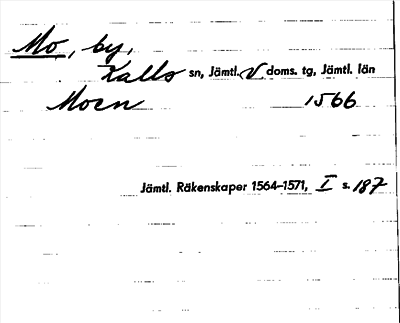 Mo, by,
Kalls sn, Jämtl. V doms. tg, Jämtl. län
Moen 1566
Jämtl. Räkenskaper 1564–1571, I s. 187